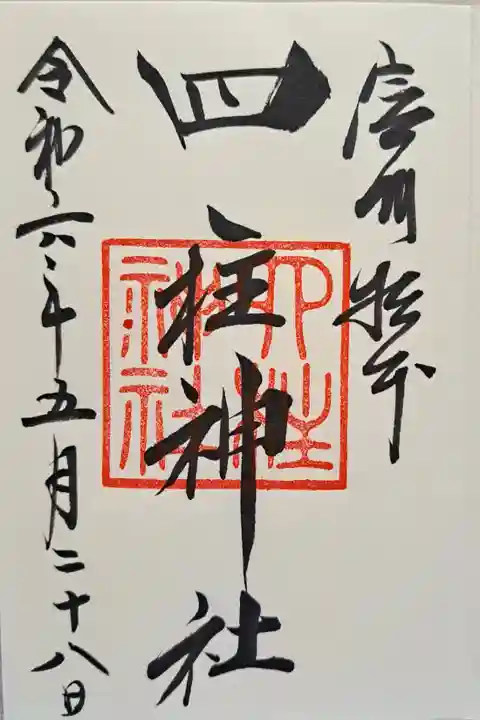 信州松本
四柱神社
四柱
神社
令和六年五月二十八日